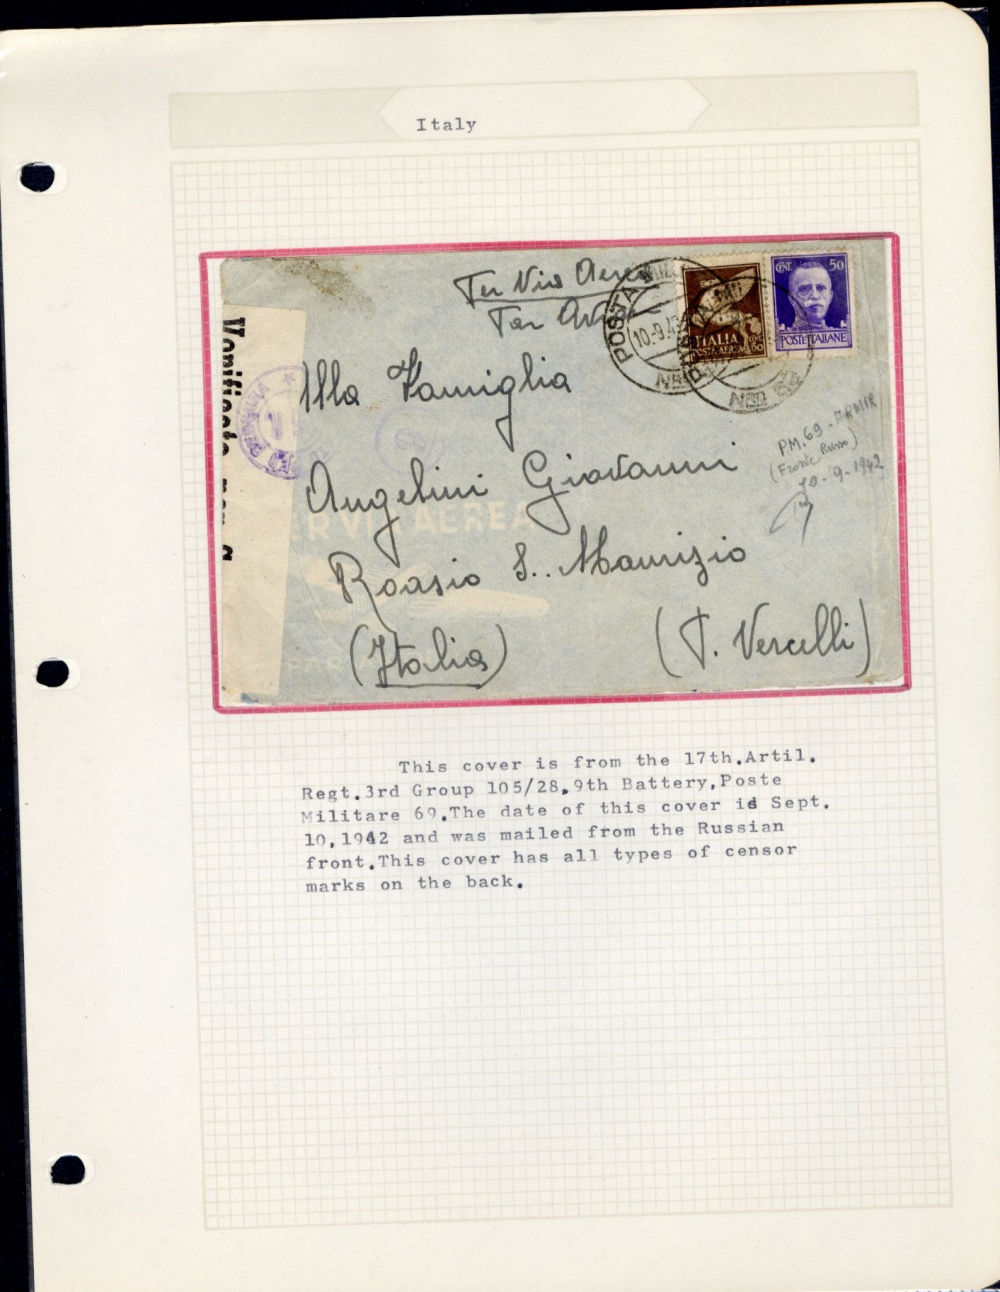 Italy
Per Via Aerea
Par Avion
POSTA MILIT
10.9.42
NRO 69
NRO 69
ITALIA
POSTA AEREA
CENT 50
CENT. 50
POSTE ITALIANE
Verificato per c
Alla Famiglia
PM.69 - ARMIR
(Fronte Russo)
10-9-1942
Angelini Giovanni
PER VIA AEREA
Roasio S.. Maurizio
(Italia)
(P. Vercelli)
PAR
This cover is from the 17th.Artil.
Regt.3rd Group 105/28,9th Battery,Poste
Militare 69.The date of this cover is Sept.
10,1942 and was mailed from the Russian
front.This cover has all types of censor
marks on the back.